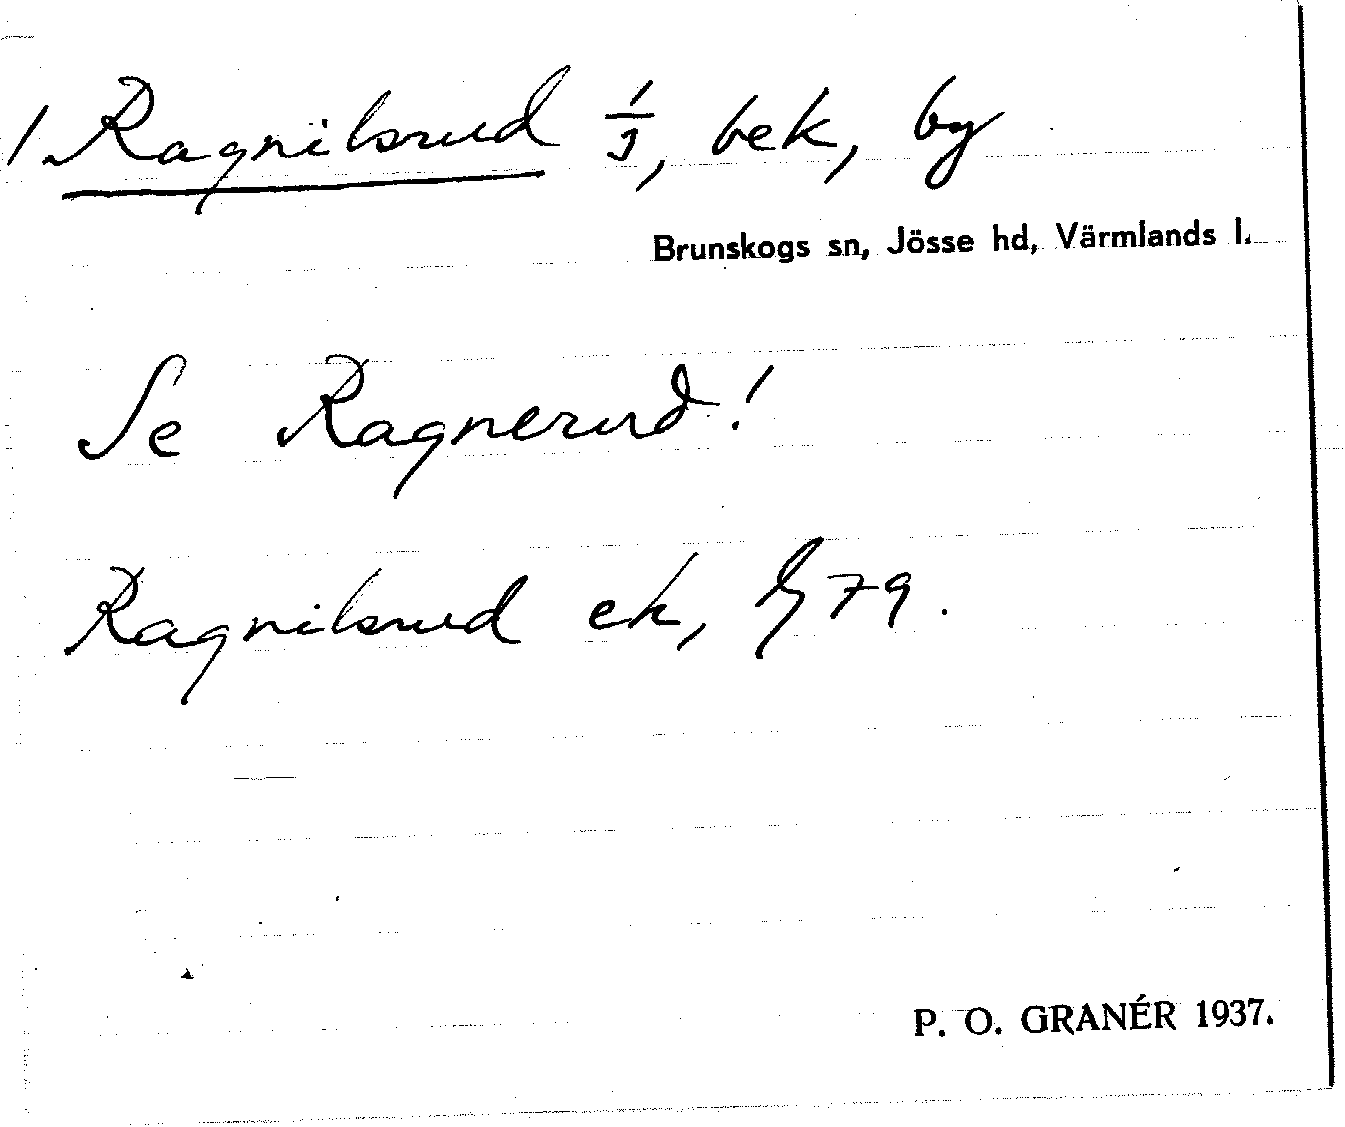 1 Ragnilsrud 1/3, bek, by
Brunskogs sn, Jösse hd, Värmlands l.
Se Ragnerud!
Ragnilsrud ek, 79.
P. O. GRANÉR 1937.